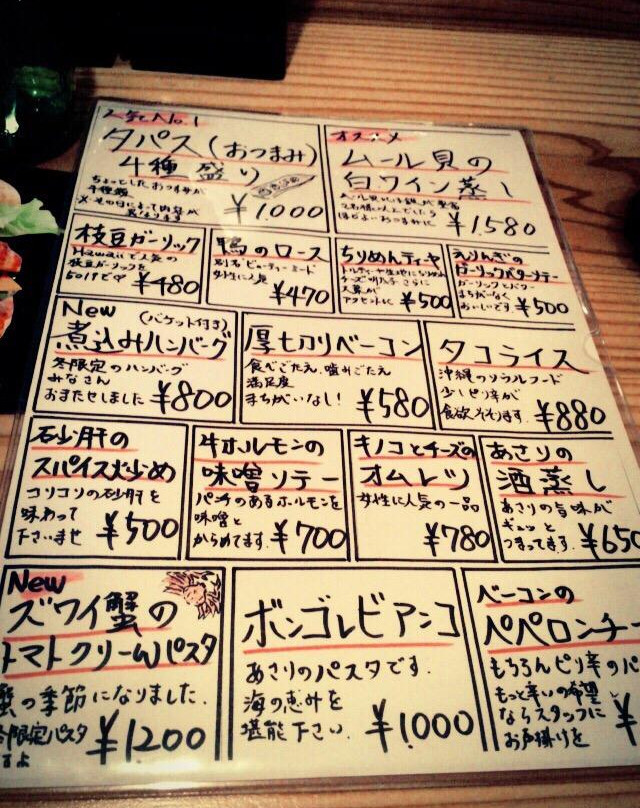 人気No.1
タパス(おつまみ)
4種盛り
ちょっとしたおつまみが
4種類
¥1,000
オススメ
ムール貝の
白ワイン蒸し
¥1,580
枝豆ガーリック
Hawaiiで人気の
枝豆ガーリックを
¥480
鴨のロース
別名ビューティーミート
女性に人気
¥470
ちりめんティヤ
¥500
えりんぎの
ガーリックバターソテー
ガーリックとバター
まちがいなく
おいしいです.
¥500
New
(バケット付き)
煮込みハンバーグ
冬限定のハンバーグ
みなさん
おまたせしました
¥800
厚切りベーコン
食べごたえ、噛みごたえ
満足度
まちがいなし!
¥580
タコライス
沖縄のソウルフード
少しピリ辛が
食欲そそります.
¥880
砂肝の
スパイス炒め
コリコリの砂肝を
味わって
下さいませ
¥500
牛ホルモンの
味噌ソテー
パンチのあるホルモンを
味噌と
からめてます.
¥700
キノコとチーズの
オムレツ
女性に人気の一品
¥780
あさりの
酒蒸し
あさりの旨味が
ギュッと
つまってます.
¥650
New
ズワイ蟹の
トマトクリームパスタ
蟹の季節になりました.
冬限定パスタ
¥1200
ボンゴレビアンコ
あさりのパスタです.
海の恵みを
堪能下さい.
¥1,000
ベーコンの
ペペロンチー
もちろんピリ辛のパ
もっと辛いの希望
ならスタッフに
お声掛けを
¥